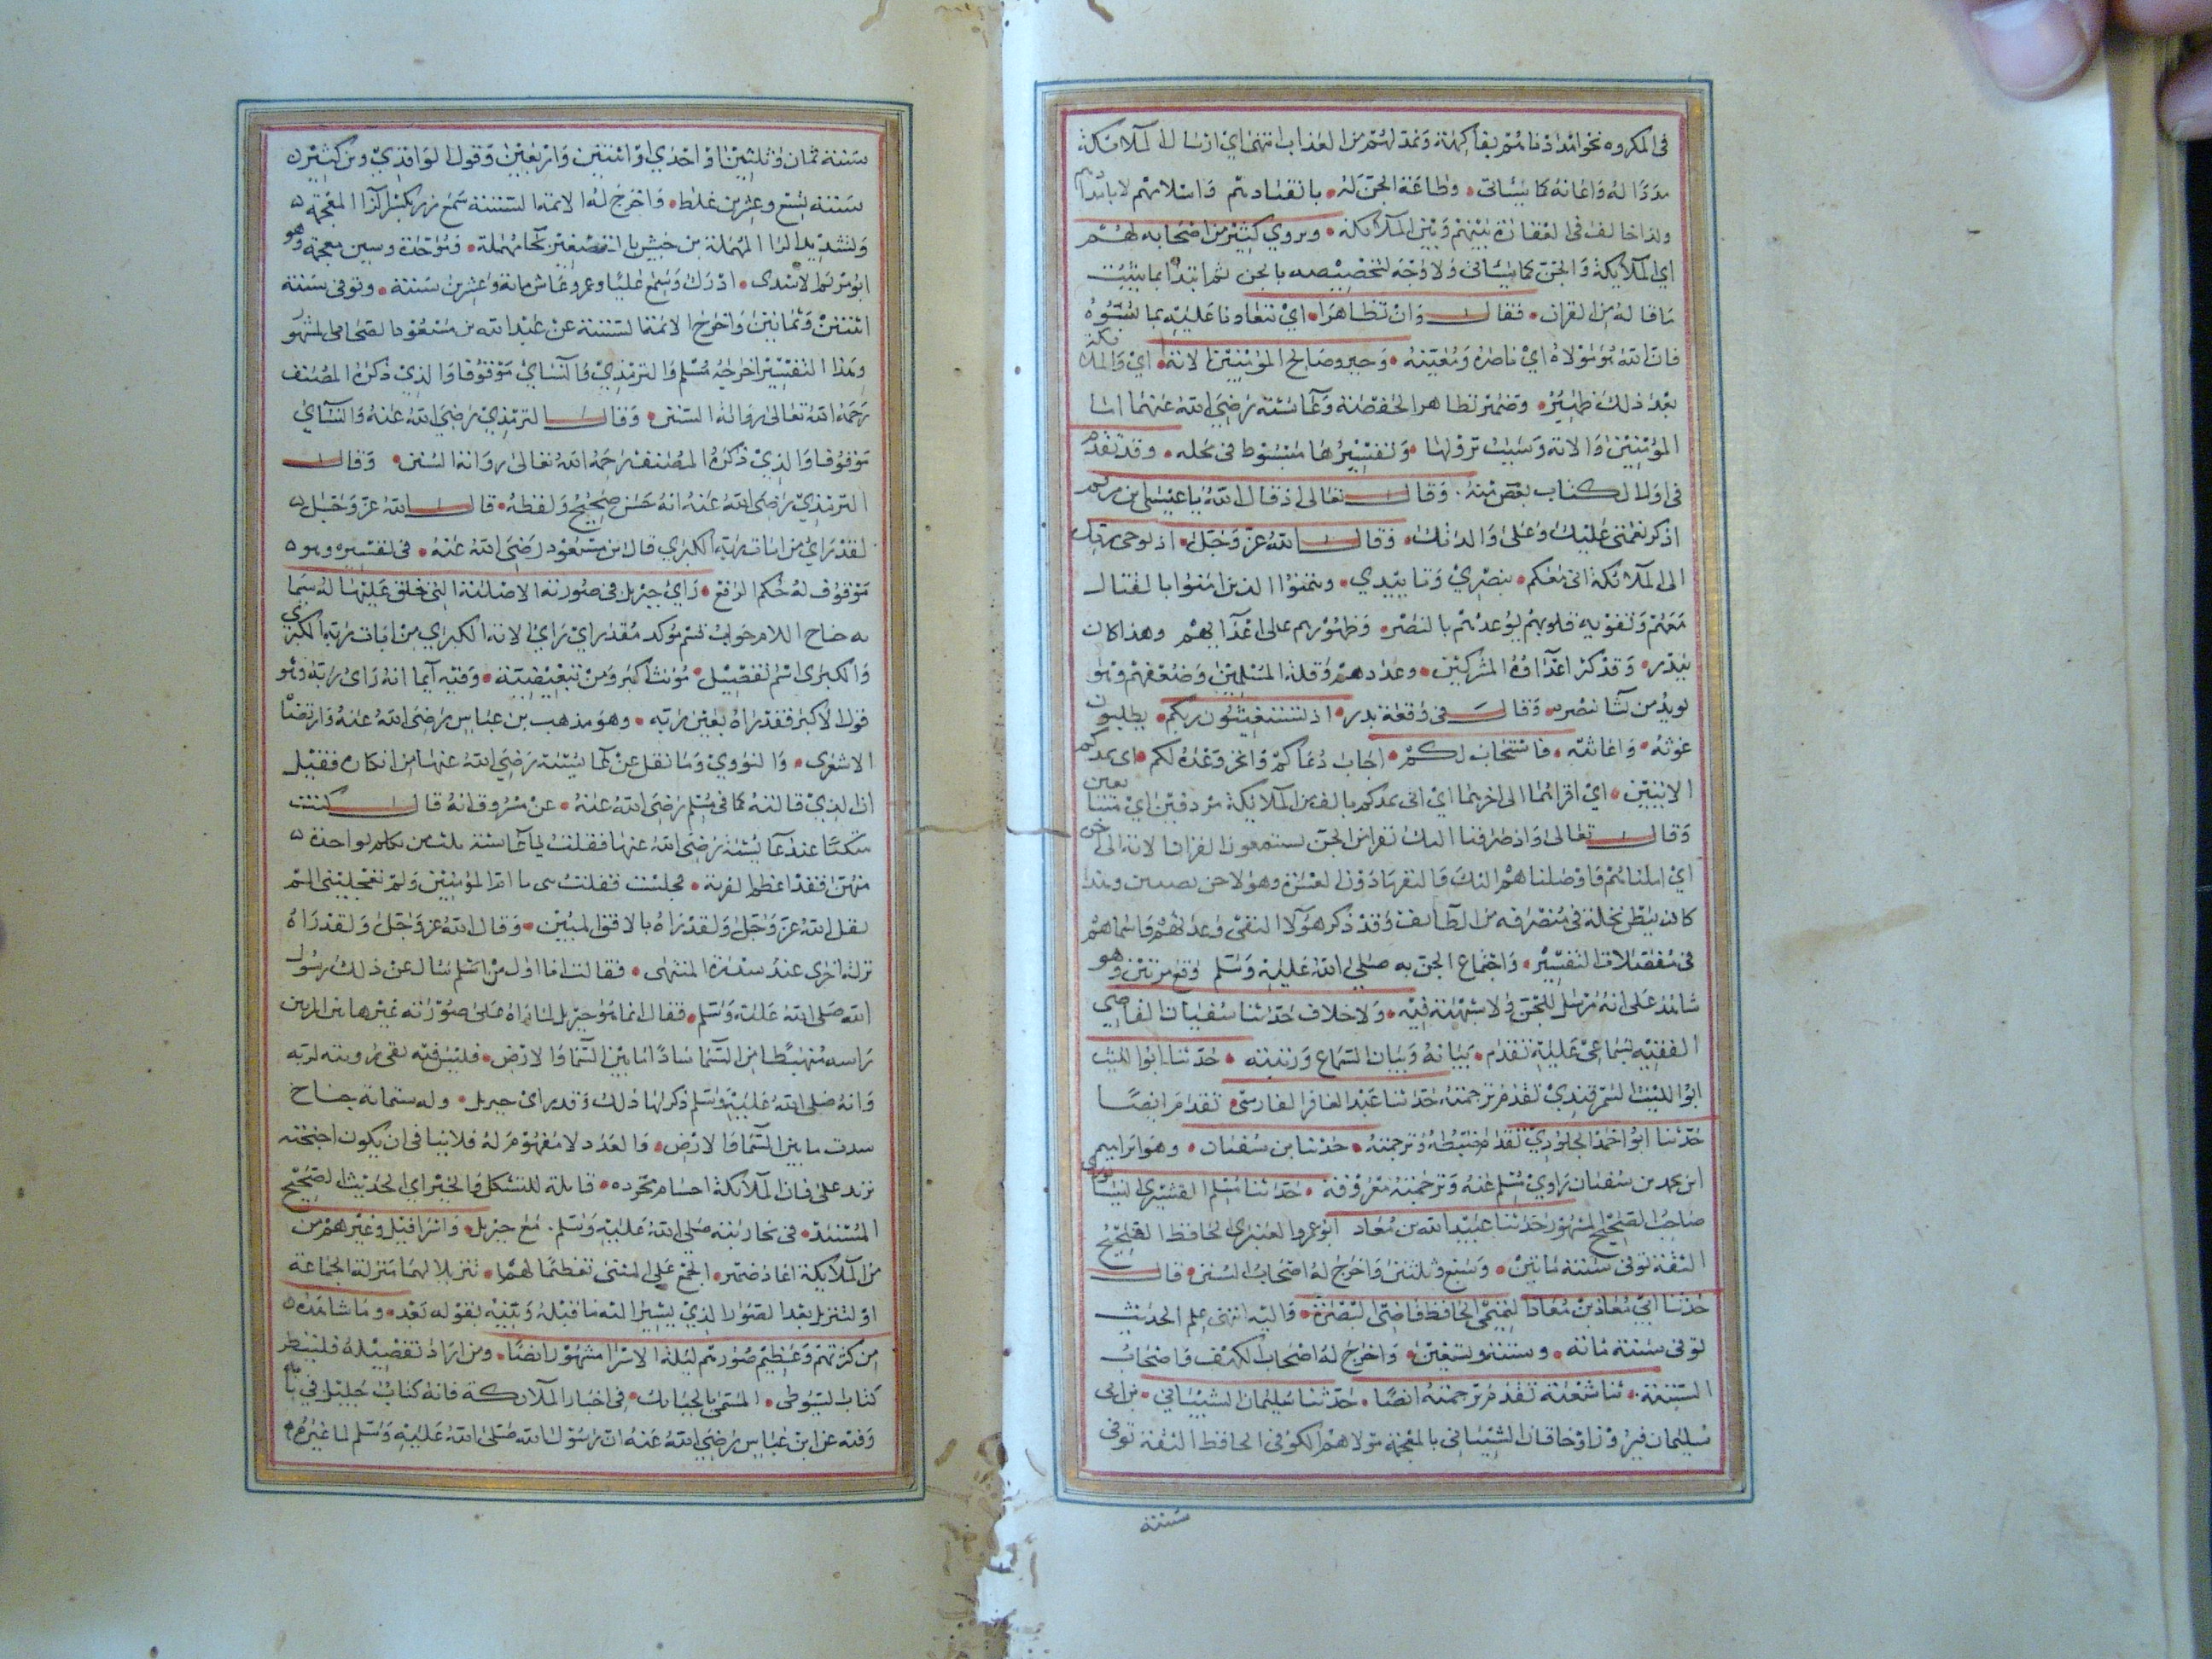 في المكروه نحو امدادنا هم بفاكهة ونمد لهم من العذاب انتهى اي ارسال الملائكة
مددا له واعانة كما سيأتي وطاعة الجن له بانقيادهم واسلامهم لا بائتدام
ولذا خالف في بينهم وبين الملائكة وروي كثير من اصحابه لهم
اي الملائكة والجن كما سيأتي ولا وجه لتخصيصه بالجن ثم ابتدا بما يثبت
ما قاله من القران فقال وان تظاهرا اي تتعاونا عليه بما يسوه
فان الله هو مولاه اي ناصره ومعينه وجبريل وصالح المؤمنين الاية اي والملائكة
بعد ذلك ظهير وضمير تظاهرا لحفصة وعائشة رضي الله عنهما اما
المؤمنين والاية وسبب نزولها وتفسيرها مبسوط في محله وقد تقدم
في اول الكتاب بعض منه وقال تعالى اذ قال الله يا عيسى ابن مريم
اذكر نعمتي عليك وعلى والدتك فقال الله عز وجل اذ يوحي ربك
الى الملائكة اني معكم بنصري وتاييدي وثبتوا الذين امنوا بالقتال
معهم وتقوية قلوبهم بوعدهم بالنصر وظهورهم على اعدايهم وهذا كان
ببدر وقد كثر اعداؤه المشركين وعددهم وقلة المسلمين وضعفهم وهو
يويد من يشا بنصره وقال في وقعة بدر اذ تستغيثون ربكم يطلبون
غوثه واغاثته فاستجاب لكم اجاب دعاكم وانجز وعده لكم اي يمدكم
الايتين اي اقراهما الى اخرهما اي اني ممدكم بالف من الملائكة مردفين اي متتابعين
وقال تعالى واذ صرفنا اليك نفرا من الجن يستمعون القران الاية الى اخر
اي املناهم واوصلناهم اليك والنفر ما دون العشرة وهولا جن نصيبين وهذا
كان ببطن نخلة في منصرفه من الطائف وقد ذكر هؤلا النفر وعدتهم واسماهم
في مفصلات التفسير واجتماع الجن به صلى الله عليه وسلم وقع مرتين وهو
شاهد على انه مرسل للجن ولا شبهة فيه ولا خلاف حدثنا سفيان القاضي
الفقيه بسماعي عليه تقدم بيانه وبيان السماع ورتبته حدثنا ابو الليث
ابو الليث السمرقندي تقدم ترجمته حدثنا عبد الغافر الفارسي تقدم ايضا
حدثنا ابو احمد الجلودي تقدم ضبطه وترجمته حدثنا بن سفيان وهو ابراهيم
ابن محمد بن سفيان راوي مسلم عنه وترجمته معروفة حدثنا مسلم القشيري النيسابوري
صاحب الصحيح المشهور حدثنا عبيد الله بن معاذ ابو عمرو العنبري الحافظ الصحيح
الثقة توفي سنة مائتين وسبع وثلثين واخرج له اصحاب السنن قال
حدثنا ابي معاذ بن معاذ التميمي الحافظ قاضي البصرة واليه انتهى علم الحديث
توفي سنة مائة وستة وتسعين واخرج له اصحاب الكتب واصحاب
الستة ثنا شعبة تقدم ترجمته ايضا حدثنا سليمان الشيباني بن ابي
سليمان فيروز او خاقان الشيباني بالمعجمة مولاهم الكوفي الحافظ الثقة توفي
سنة
سنة ثمان وثلثين او احدي او اثنين واربعين وقول الواقدي وبن كثير
سنة تسع وعشرين غلط واخرج له الائمة الستة سمع زر بكسر الزا المعجمة
وتشديد الرا المهملة بن حبيش بالتصغير بحا مهملة فموحدة وسين معجمة وهو
ابو مريم الاسدي ادرك وسمع عليا وعمر وعاش مائة وعشرين سنة وتوفي سنة
اثنين وثمانين واخرج الائمة الستة عن عبد الله بن مسعود الصحابي المشهور
وهذا التفسير اخرجه مسلم والترمذي والنساي موقوفا والذي ذكره المصنف
رحمه الله تعالى رواية السنن وقال الترمذي رضي الله عنه والنساي
موقوفا والذي ذكره المصنف رحمه الله تعالى رواية السنن وقال
الترمذي رضي الله عنه انه حسن صحيح ولفظه قال الله عز وجل
لقد راي من ايات ربه الكبري قال ابن مسعود رضي الله عنه في تفسيره وهو
موقوف له حكم الرفع راي جبريل في صورته الاصلية التي خلق عليها له ستمائة
جناح اللام جواب قسم موكد مقدر اي راي الاية الكبري من ايات ربه الكبري
والكبري اسم تفضيل مونث اكبر ومن تبعيضية وفيه ايما انه راي ربه وهو
قول الاكثر فقد راه بعين راسه وهو مذهب بن عباس رضي الله عنه وارتضاه
الاشعري والنووي وما نقل عن عائشة رضي الله عنها من انكاره فقيل
ان الذي قالته كما في مسلم رضي الله عنه عن مسروق انه قال كنت
متكئا عند عائشة رضي الله عنها فقلت يا عائشة ثلث من تكلم بواحدة
منهن فقد اعظم الفرية فجلست فقلت يا ام المؤمنين ولم تعجليني الم
يقل الله عز وجل ولقد راه بالافق المبين وقال الله عز وجل ولقد راه
نزلة اخري عند سدرة المنتهى فقالت انا اول من اسلم سال عن ذلك رسول
الله صلى الله عليه وسلم فقال انما هو جبريل لم اراه على صورته غير هاتين المرتين
راسه منهبطا من السما سادا ما بين السما والارض فليس فيه نفي رويته لربه
وانه صلى الله عليه وسلم ذكر لها ذلك وقد راي جبريل وله ستمائة جناح
سدت ما بين السما والارض والعدد لا مفهوم له فلا ينافي ان يكون اجنحته
تزيد على فان الملائكة اجسام مجرده قابلة للتشكل والخبر اي الحديث الصحيح
المسند في محاربته صلى الله عليه وسلم مع جبريل واسرافيل وغيرهم من
من الملايكة اعاد ضمير الجمع على المثنى تعظيما لهما تنزيلا لهما منزلة الجماعة
او لتنزيل بعد الصور الذي يشير اليه ما قبله وبينه بقوله بعد وما شاهده
من كثرتهم وعظيم صورتهم ليلة الاسرا مشهور ايضا ومن اراد تفصيله فلينظر
كتاب السيوطي المسمى بالحبايك في اخبار الملايكة فانه كتاب جليل في بابه
وفيه عن ابن عباس رضي الله عنه ان رسول الله صلى الله عليه وسلم لما عيره